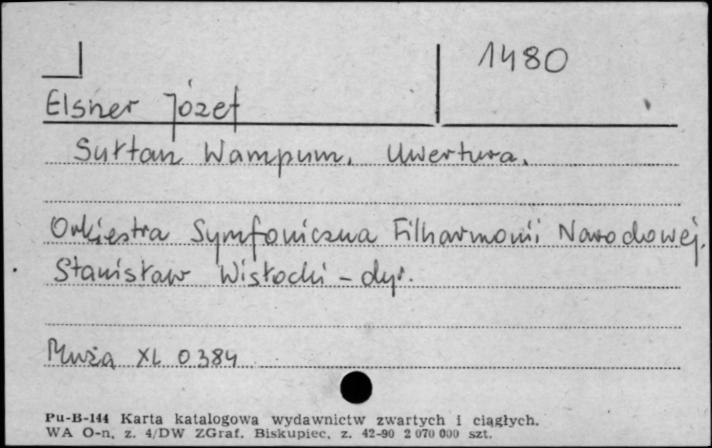 1480
Elsner Józef
Sułtan Wampum. Uwertura.
Orkiestra Symfoniczna Filharmonii Narodowej.
Stanisław Wisłocki - dyr.
Muza XL 0384
Pu-B-144 Karta katalogowa wydawnictw zwartych i ciągłych.
WA O-n, z. 4/DW ZGraf. Biskupiec, z. 42-90 2 070 000 szt.